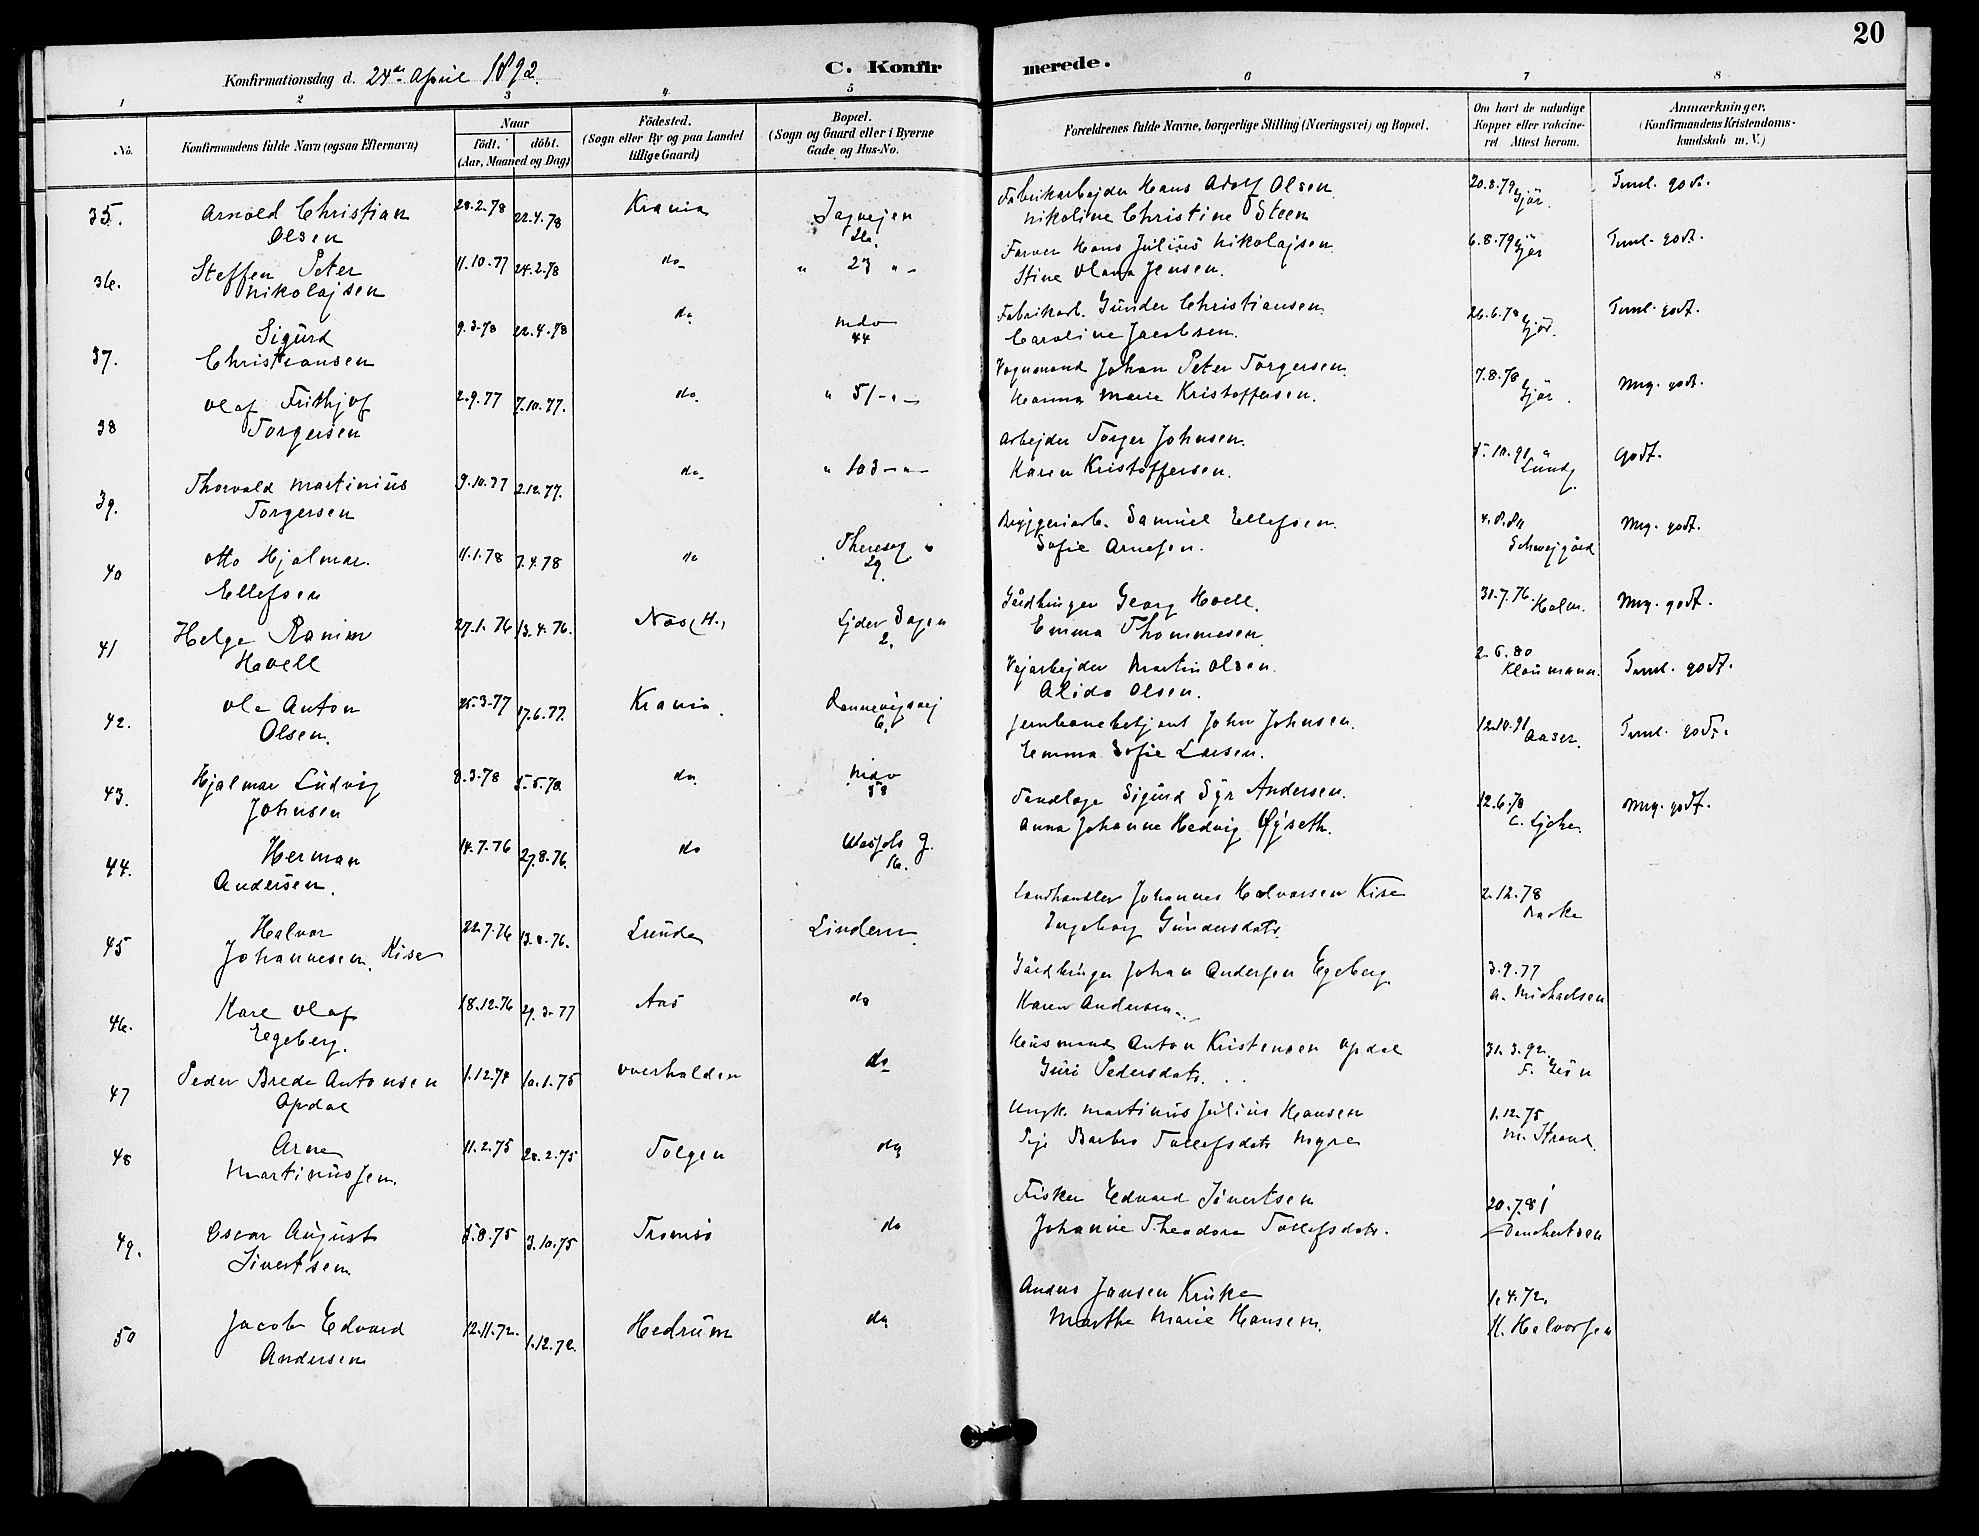 20
Konfirmationsdag d. 24de April 1892.
C. Konfirmerede.
1 2 3 4 5 6 7 8
No.
Konfirmandens fulde Navn (ogsaa Efternavn)
Naar
födt. döbt.
(Aar, Maaned og Dag)
Födested.
(Sogn eller By og paa Landet
tillige Gaard)
Bopæl.
(Sogn og Gaard eller i Byerne
Gade og Hus-No.
Forældrenes fulde Navne, borgerlige Stilling (Næringsvei) og Bopæl.
Om havt de naturlige
Kopper eller vakcine-
ret Attest herom.
Anmærkninger.
(Konfirmandens Kristendoms-
kundskab m. V.)
35. Arnold Christian 28.2.78 22.4.78 Krania Fabrikarbejder Hans Adolf Olsen 20.8.79 Gjör. Tml. godt.
Olsen 26. Nikoline Christine Steen
36. Steffen Peter 11.10.77 24.2.78 do " 23 " Farver Hans Julius Nikolajsen 6.8.79 Gjör Tml. godt.
Nikolajsen Stine Olava Jensen.
37. Sigurd 9.3.78 22.4.78 do Mdv 44 Fabrikarb. Gunder Christiansen 26.6.78 Gjör. Tml. godt.
Christiansen Caroline Jacobsen.
38 Olaf Frithjof 2.9.77 7.10.77. do. " 51 - " - Vognmand Johan Peter Torgersen 7.8.78 Gjör. Mg. godt.
Torgersen Hanna Marie Kristoffersen.
39. Thorvald Martinius 9.10.77 2.12.77. do " 103 - " - Arbejder Torger Johnsen. 5.10.91 Lund godt.
Torgersen Karen Kristoffersen.
40 Otto Hjalmar 11.1.78 7.4.78 do Thereseg 29. Bryggeriarb. Samuel Ellefsen Schweigård Mg. godt.
Ellefsen Sofie Arnesen.
41 Helge Ranim 27.1.76 13.4.76. Næs (H.) 2. Gårdbruger Georg Hoell. 31.7.76. Holm. Mg. godt.
Hoell Emma Thommesen
42. Ole Anton 25.3.77 17.6.77. Krania. Rannevigsvej 6. Vejarbejder Martin Olsen 2.6.80 Klaumann. Tml. godt.
Olsen. Alida Olsen.
43. Hjalmar Ludvig 8.3.78 5.5.78 do Mdv 58 Jernbanebetjent John Johnsen. 12.10.91 Aaser. Tml. godt.
Johnsen Emma Sofie Larsen.
44. Herman 14.7.76 27.8.76. do 16. Tandlæge Sigurd Syr Andersen. 12.6.78 Mg. godt.
Andersen. Anna Johanne Hedvig Øyseth.
45 Halvor 22.7.76 13.8.76. Lunde Lindern Landhandler Johannes Halvorsen Kise 2.12.78
Johannesen Kise Ingeborg Gundersdatr.
46. Kare Olaf 18.12.76 29.3.77 Aas do Gårdbruger Johan Andersen Egeberg 3.9.77
Egeberg. Karen Andersen. A. Michaelsen
47 Peder Brede Antonsen 1.12.74 10.1.75 Overhalden do Husmand Anton Kristensen Opdal 31.3.92.
Opdal Guro Pedersdatr.
48 Arne 11.2.75 28.2.75 Tolgen do Ungk. Martinus Julius Hansen 1.12.75
Martinussen. Pige Barbro Tollefsdatr Myre M. Strand.
49. Oscar August 5.8.75 3.10.75 Tromsö do Fisker Edvard Sivertsen 20.7.81
Sivertsen Johanne Theodora Tollefsdatr.
50 Jacob Edvard 12.11.72. 1.12.72. Hedrum do Anders Jansen Kruke 1.4.72.
Andersen Marthe Marie Hansen. H. Halvorsen